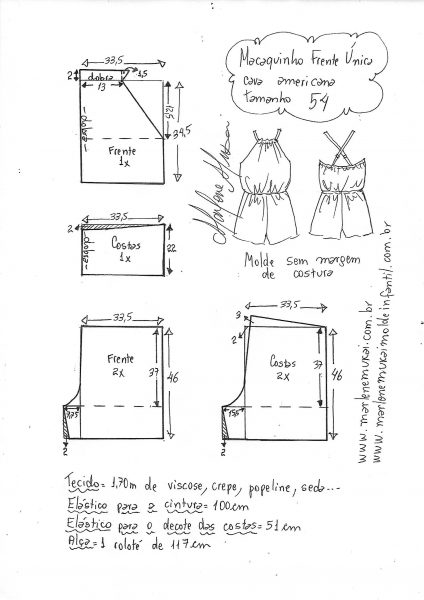 Macaquinho Frente Única
cava americana
tamanho 54
33,5
2
1,5
dobra
13
dobra
Frente
1x
34,5
Marlene Mukai
33,5
2
dobra
Costas
1x
22
Molde sem margem
de costura
33,5
Frente
2x
37
46
2
33,5
3
2
Costas
2x
37
46
2
www.marlenemukai.com.br
www.marlenemukaimoldeinfantil.com.br
Tecido= 1,70m de viscose, crepe, popeline, seda...
Elástico para a cintura= 100cm
Elástico para o decote das costas= 51cm
Alça= 1 rolotê de 117cm